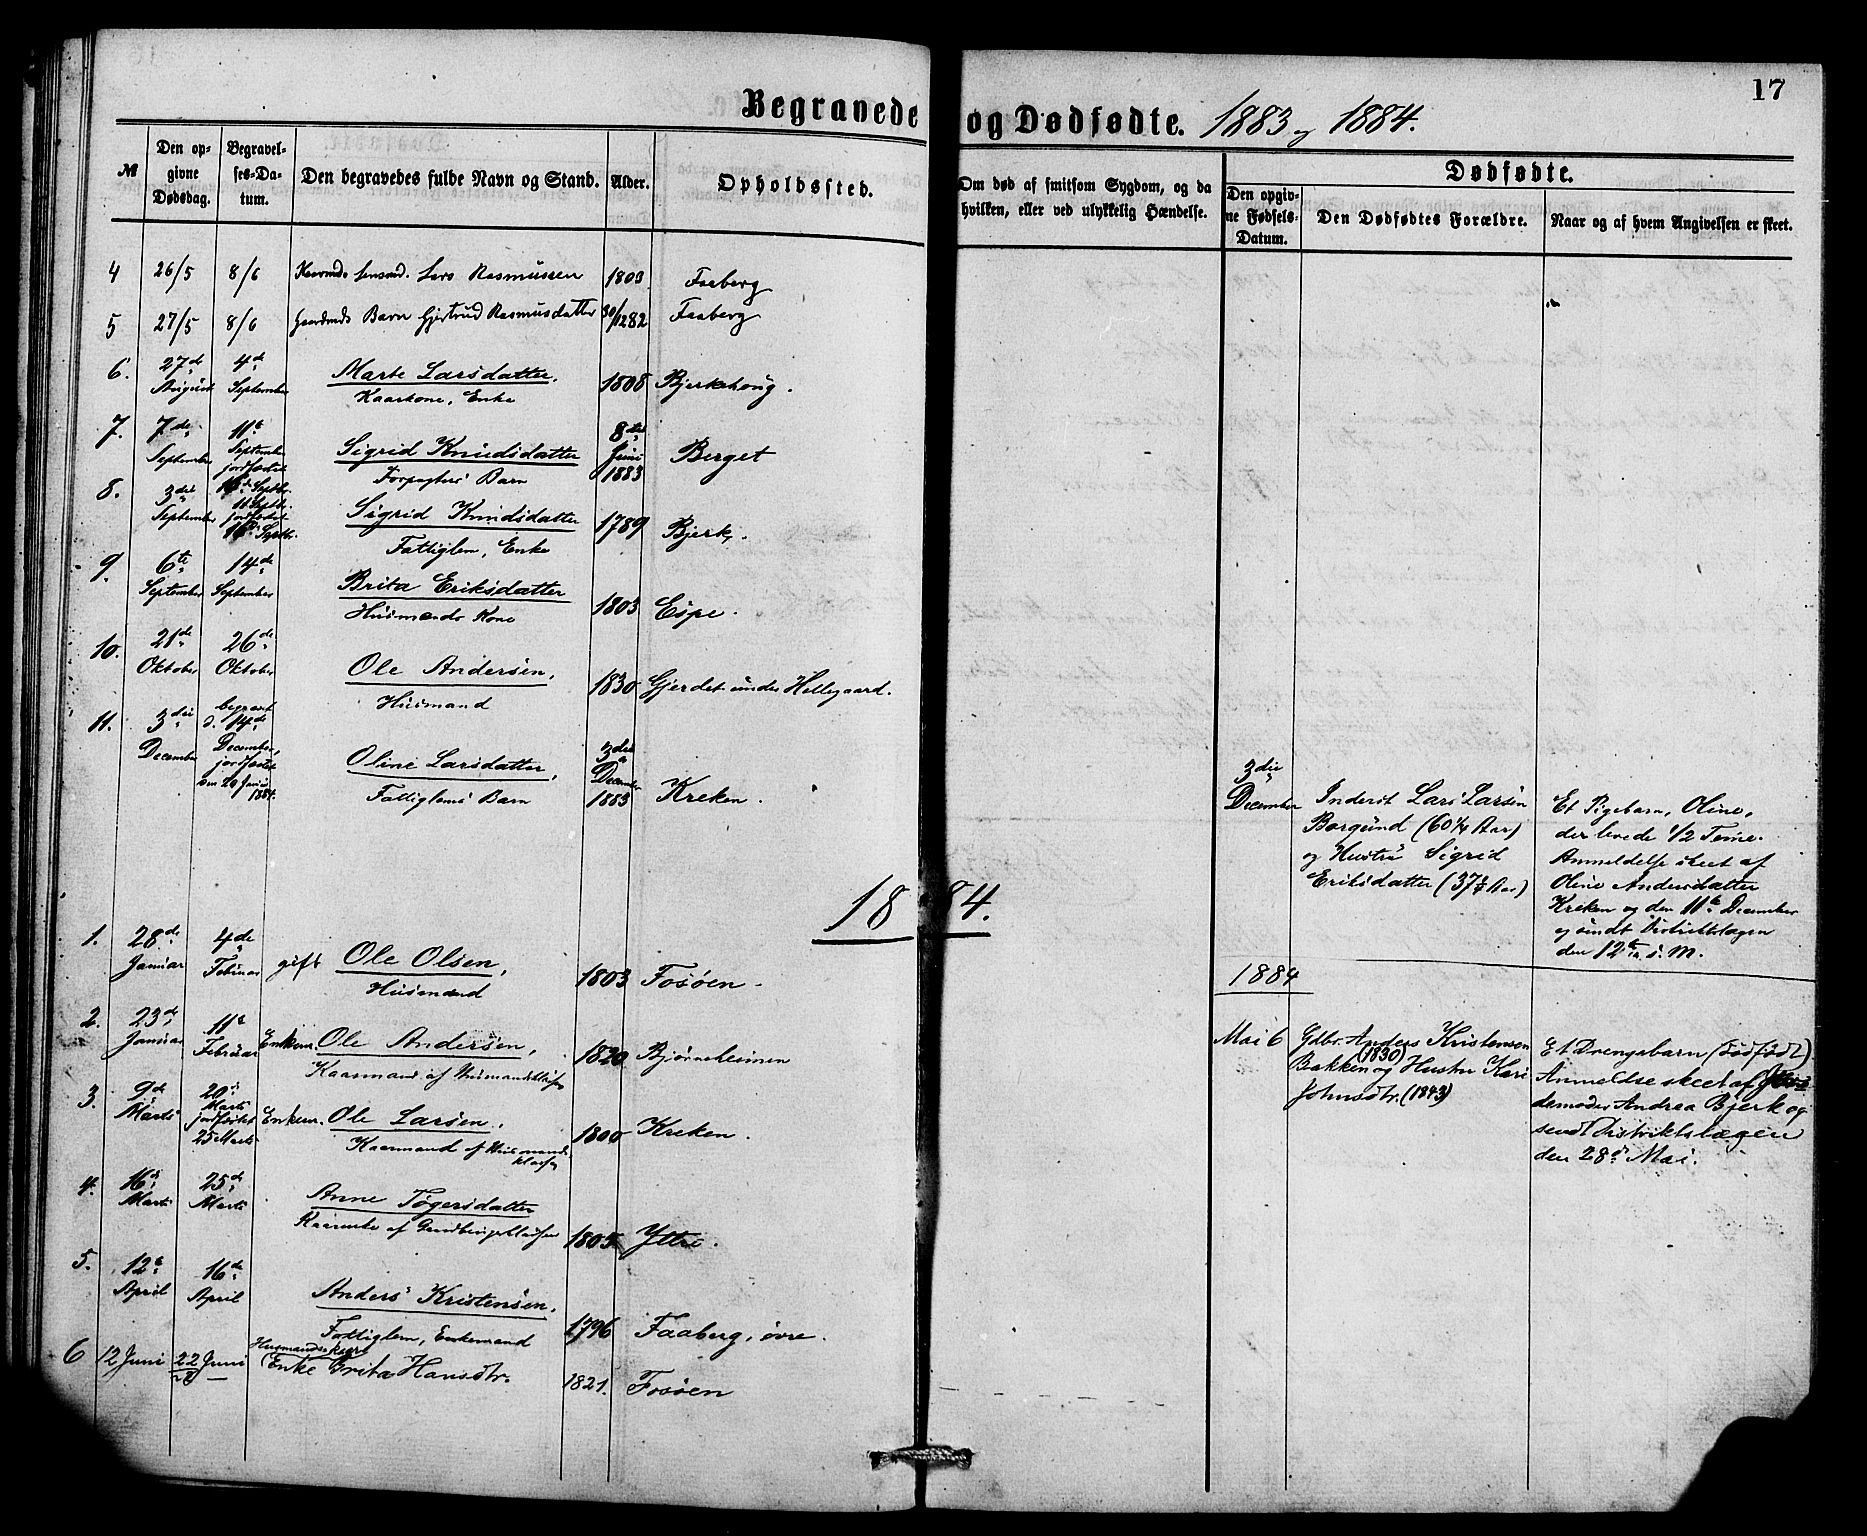 17
Begravede og Dødfødte. 1883 og 1884.
№
Den opgivne Dødsdag.
Begravelses-Datum.
Den begravedes fulde Navn og Stand.
Alder.
Opholdssted.
Om død af smitsom Sygdom, og da hvilken, eller ved ulykkelig Hændelse.
Dødfødte.
Den opgivne Fødsels-Datum.
Den Dødfødtes Forældre.
Naar og af hvem Angivelsen er skeet.
4 26/5 8/6 Lars Rasmussen 1803 Faaberg
5 27/5 8/6 Barn Gjertrud Rasmusdatter 30/12 82 Faaberg
6. 27de August 4de September Marte Larsdatter, 1808 Bjerkehoug.
Kaarkone, Enke
7. 7de September 11te September jordfæstet 16de Septbr. Sigrid Knudsdatter 8de Juni 1883 Berget
Forpagters Barn
8. 3die September 11 Septbr. jordfæstet 16de Septbr. Sigrid Knudsdatter 1789 Bjerk.
Fattiglem, Enke
9. 6te September 14de September Brita Eriksdatter 1803 Espe.
Husmands Kone
10. 21de Oktober 26de Oktober Ole Andersen, 1830 Gjerdet under Hellegaard.
Husmand
11. 3die December begravet d. 14de December, jordfæstet den 20 Juni 1884. Oline Larsdatter, 3die December 1883 Kreken.
Fattiglems Barn
3die December
Inderst Lars Larsen
Borgund (60 1/4 Aar)
og Hustru Sigrid
Eriksdatter (37 Aar)
Et Pigebarn, Oline,
der levede 1/2 Time.
Anmeldelse skeet af
Oline Andersdatter
Kreken og den 11te December
og sendt Distriktslægen
den 12te s. M.
1884.
1. 28de Januar 4de Februar gift Ole Olsen, 1803 Fosøen
Husmand
2. 23de Januar 11te Februar Enkem. Ole Andersen, 1820 Bjørnehesinen
Kaarmand af Husmandsklassen
3. 9de Marts 20de Marts jordfæstet 25 Marts Enkem. Ole Larsen, 1800 Kreken.
Kaarmand af Husmands-
klassen
4. 16de Marts 25de Marts Anne Tøgersdatter 1805 Yttri.
Kaarenke af Gaardbrugerklassen
5. 12te April 16de April Anders Kristensen, 1796 Faaberg, øvre.
Fattiglem, Enkemand
6 12 Juni 22 Juni Husmands
Enke Brita Hansdtr. 1821. Fosøen
1884
Mai 6
Gdbr. Anders Kristensen
(1830)
Bakken og Hustru Kari
Johnsdtr. (1843)
Et Drengebarn (dødfødt)
Anmeldse skeet af Jor-
demoder Andrea Bjerk og
sendt Distriktslægen
den 28de Mai.